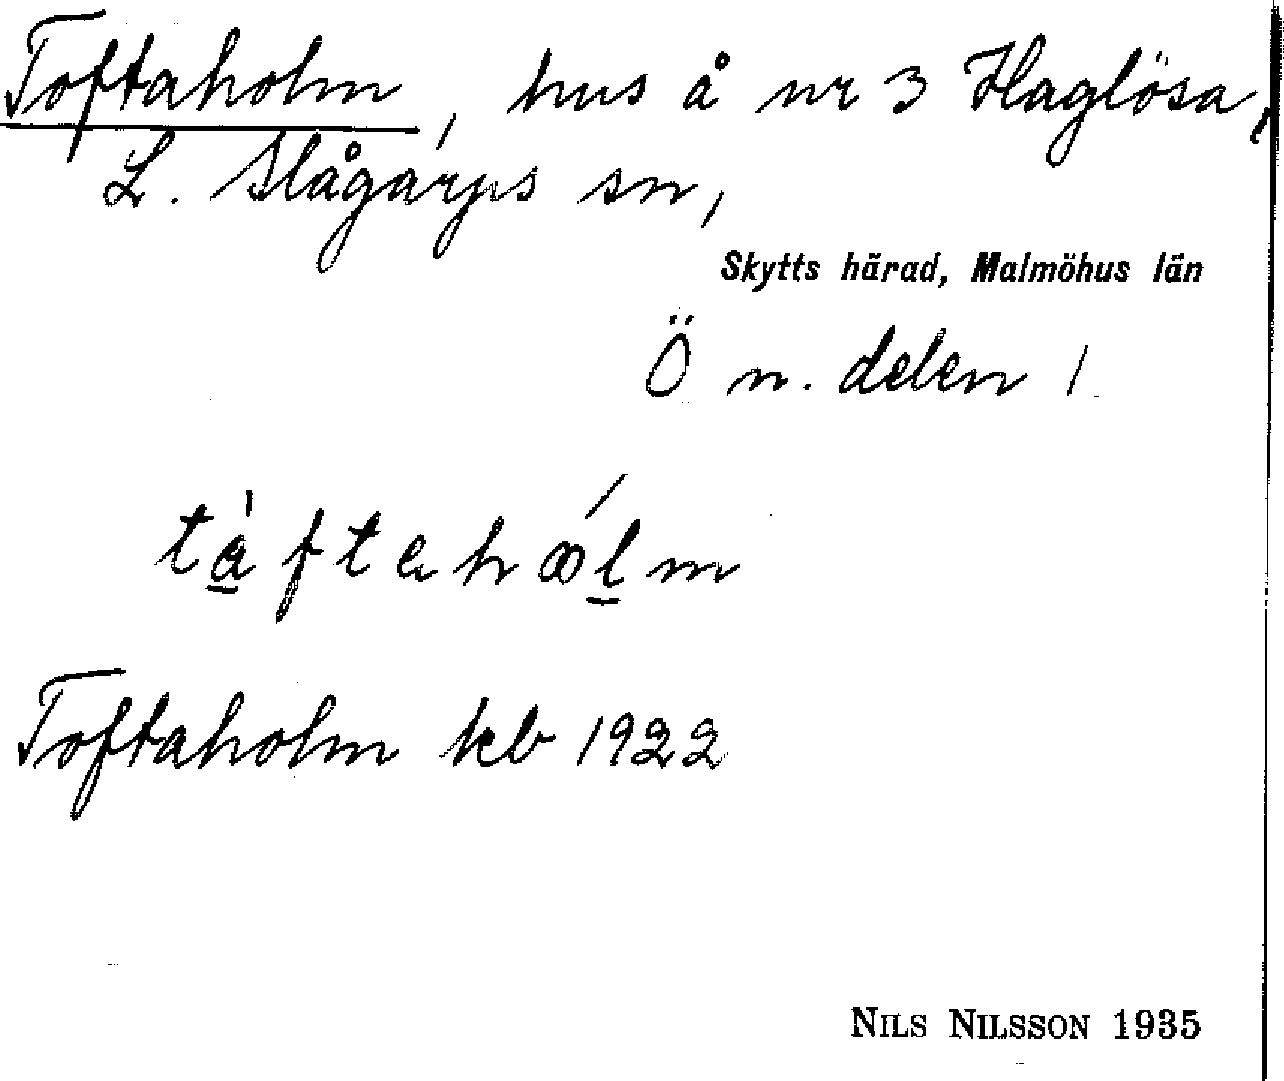 Toftaholm, hus å nr 3 Haglösa,
L. Slågarps sn,
Skytts härad, Malmöhus län
Ö n. delen 1
Toftaholm kb 1922
NILS NILSSON 1935